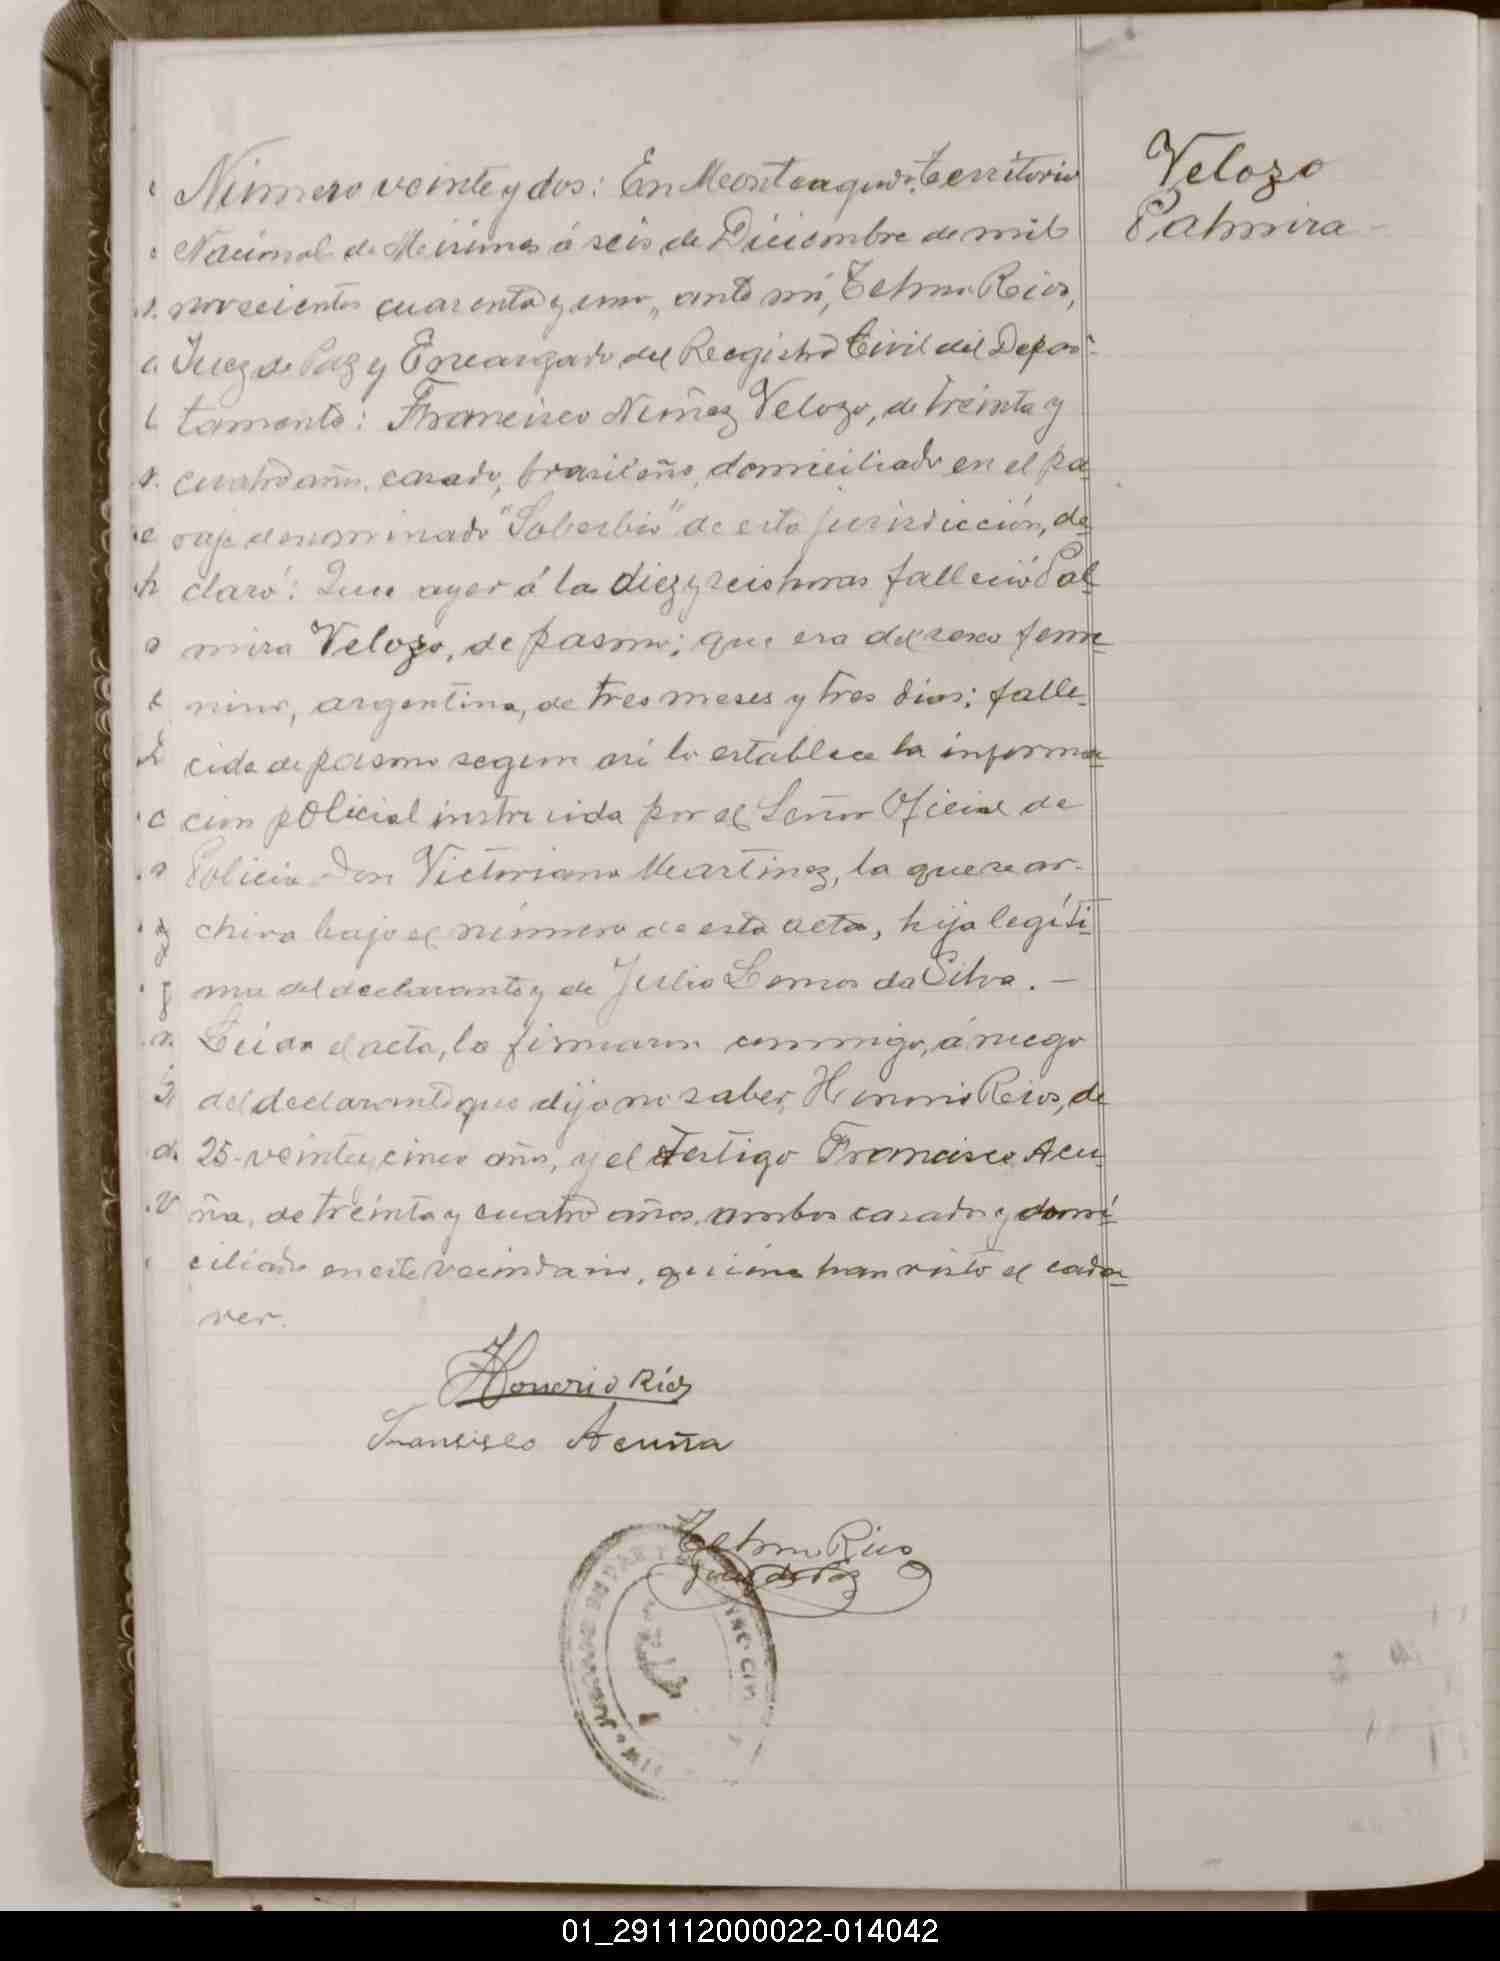 Número veinte y dos: En Monteagudo, territorio
Nacional de Misiones á seis de Diciembre de mil
novecientos cuarenta y uno, ante mi, Telmo Rios,
Juez de Paz y Encargado del Registro Civil del Depar-
tamento: Francisco Nuñez Velozo, de treinta y
cuatro años, casado, brasileño, domiciliado en el pa-
raje denominado "Soberbio" de esta jurisdicción, de-
claró: Que ayer á las diez y seis horas falleció Pal-
mira Velozo, de pasmo; que era del sexo feme-
nino, argentina, de tres meses y tres dias; falle-
cida de pasmo segun asi lo establece la informa-
cion policial instruida por el Señor Oficial de
Policia Don Victoriano Martinez, la que se ar-
chiva bajo el número de esta acta, hija legíti-
ma del declarante y de Julia Lemos da Silva. —
Leida el acta, la firmaron conmigo, á ruego
del declarante que dijo no saber, Honorio Rios, de
25-veinte y cinco años, y el testigo Francisco Acu-
ña, de treinta y cuatro años, ambos casados y domi-
ciliados en este vecindario, quienes han visto el cada-
ver.
Velozo
Palmira
Honorio Ríos
Francisco Acuña
Telmo Rios
Juez de Paz
01_291112000022-014042